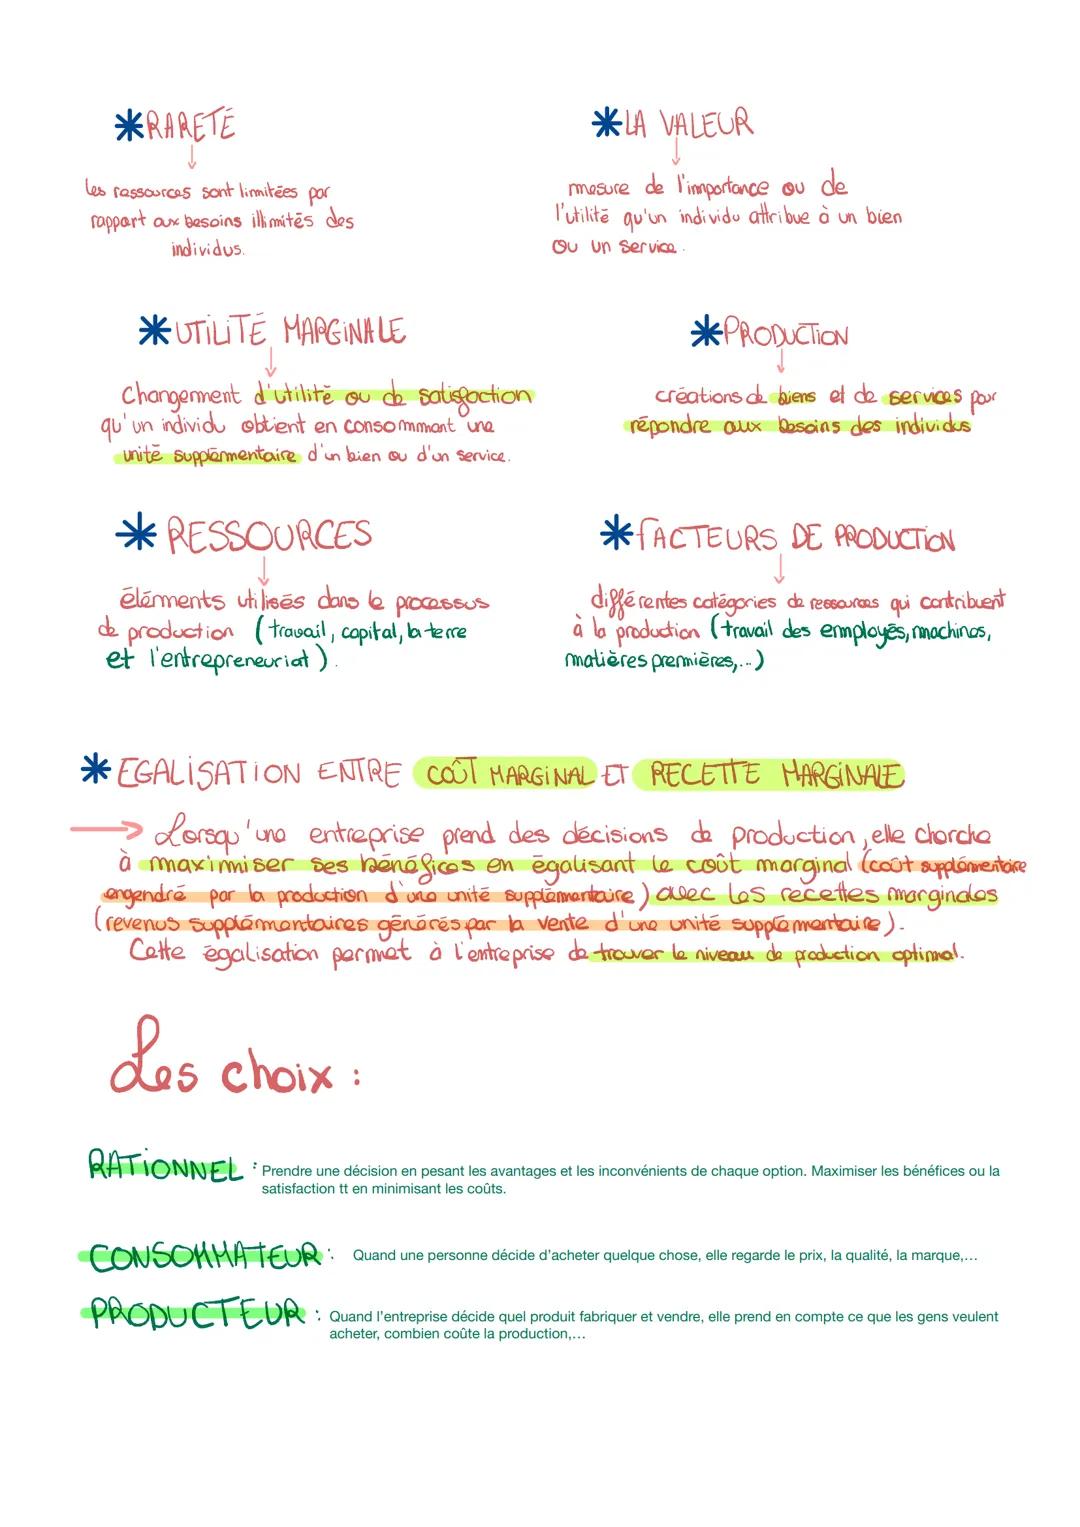 *RARETÉ
les ressources sont limitées par
rapport aux besoins illimités des
individus.
*LA VALEUR
mesure de l'importance ou de
l'utilité qu'un individu attribue à un bien
ou un service.
*UTILITÉ MARGINALE
Changement d'utilité ou de satisfaction
qu'un individu obtient en consommant une
unité supplémentaire d'un bien ou d'un service.
*PRODUCTION
créations de biens et de services pour
répondre aux besoins des individus
*RESSOURCES
éléments utilisés dans le processus
de production (travail, capital, la terre
et l'entrepreneuriat).
*FACTEURS DE PRODUCTION
différentes catégories de ressources qui contribuent
à la production (travail des employés, machines,
matières premières,...)
*EGALISATION ENTRE COÛT MARGINAL ET RECETTE MARGINALE
→ Lorsqu'une entreprise prend des décisions de production, elle cherche
à maximiser ses bénéfices en égalisant le coût marginal (coût supplémentaire
engendré par la production d'une unité supplémentaire) avec les recettes marginales
(revenus supplémentaires générés par la vente d'une unité supplémentaire).
Cette égalisation permet à l'entreprise de trouver le niveau de production optimal.
Les choix :
RATIONNEL : Prendre une décision en pesant les avantages et les inconvénients de chaque option. Maximiser les bénéfices ou la
satisfaction tt en minimisant les coûts.
CONSOMMATEUR : Quand une personne décide d'acheter quelque chose, elle regarde le prix, la qualité, la marque,…
PRODUCTEUR : Quand l'entreprise décide quel produit fabriquer et vendre, elle prend en compte ce que les gens veulent
acheter, combien coûte la production,…